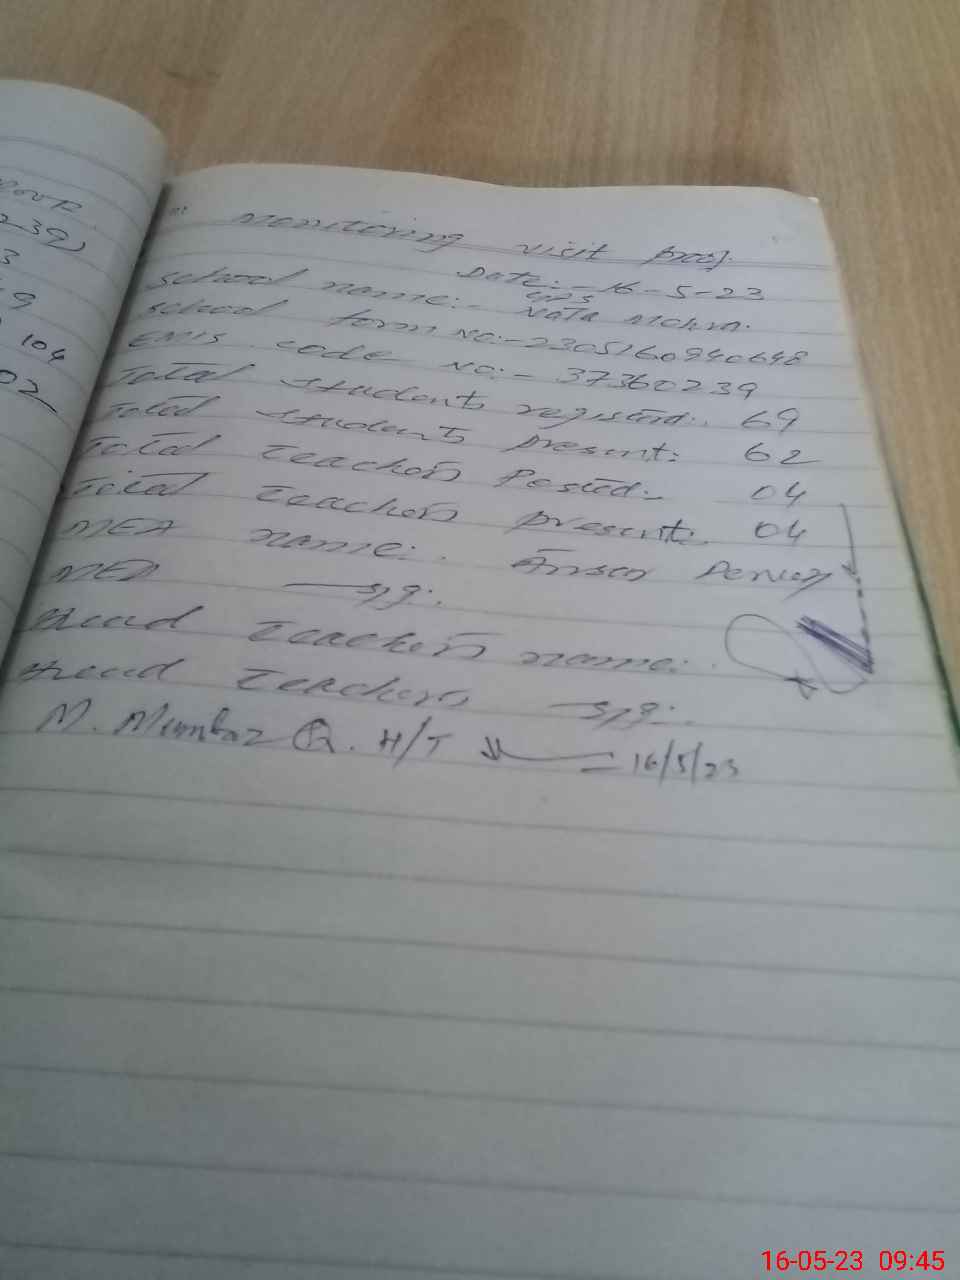 Monitoring visit proof.
Date:- 16-5-23
GPS
School name:- Nata Mohra.
School form No:- 2305160940648
EMIS code No:- 37360239
Total students registerd:. 69
Total students present: 62
Total Teachers Posted:- 04
Total Teachers present: 04
MEA name:. Ansar
MEA sig:.
Head Teachers name:.
Head Teachers sig:.
M. Mumtaz Q. H/T 16/5/23
239)
3
9
104
02
16-05-23 09:45